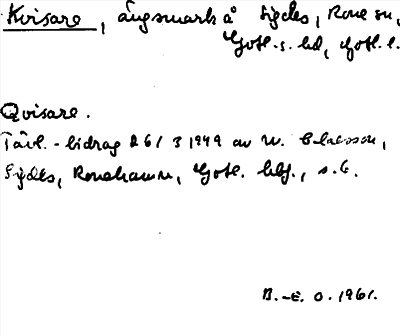 Kvisare, ängsmark å Sigdes, Rone sn,
Gotl. s. hd, Gotl. l.
Qvisare.
Tävl.-bidrag 26/3 1949 av W. Claesson,
Sigdes, Ronehamn, Gotl.
B.-E. O. 1961.